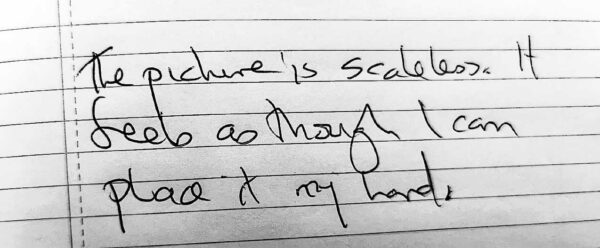 The picture is scaleless. It
feels as though I can
place it my hand.